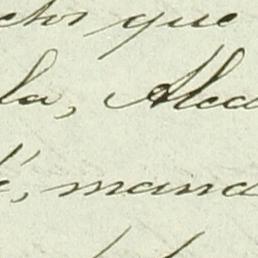 ctos que
la, Alca
é, mand